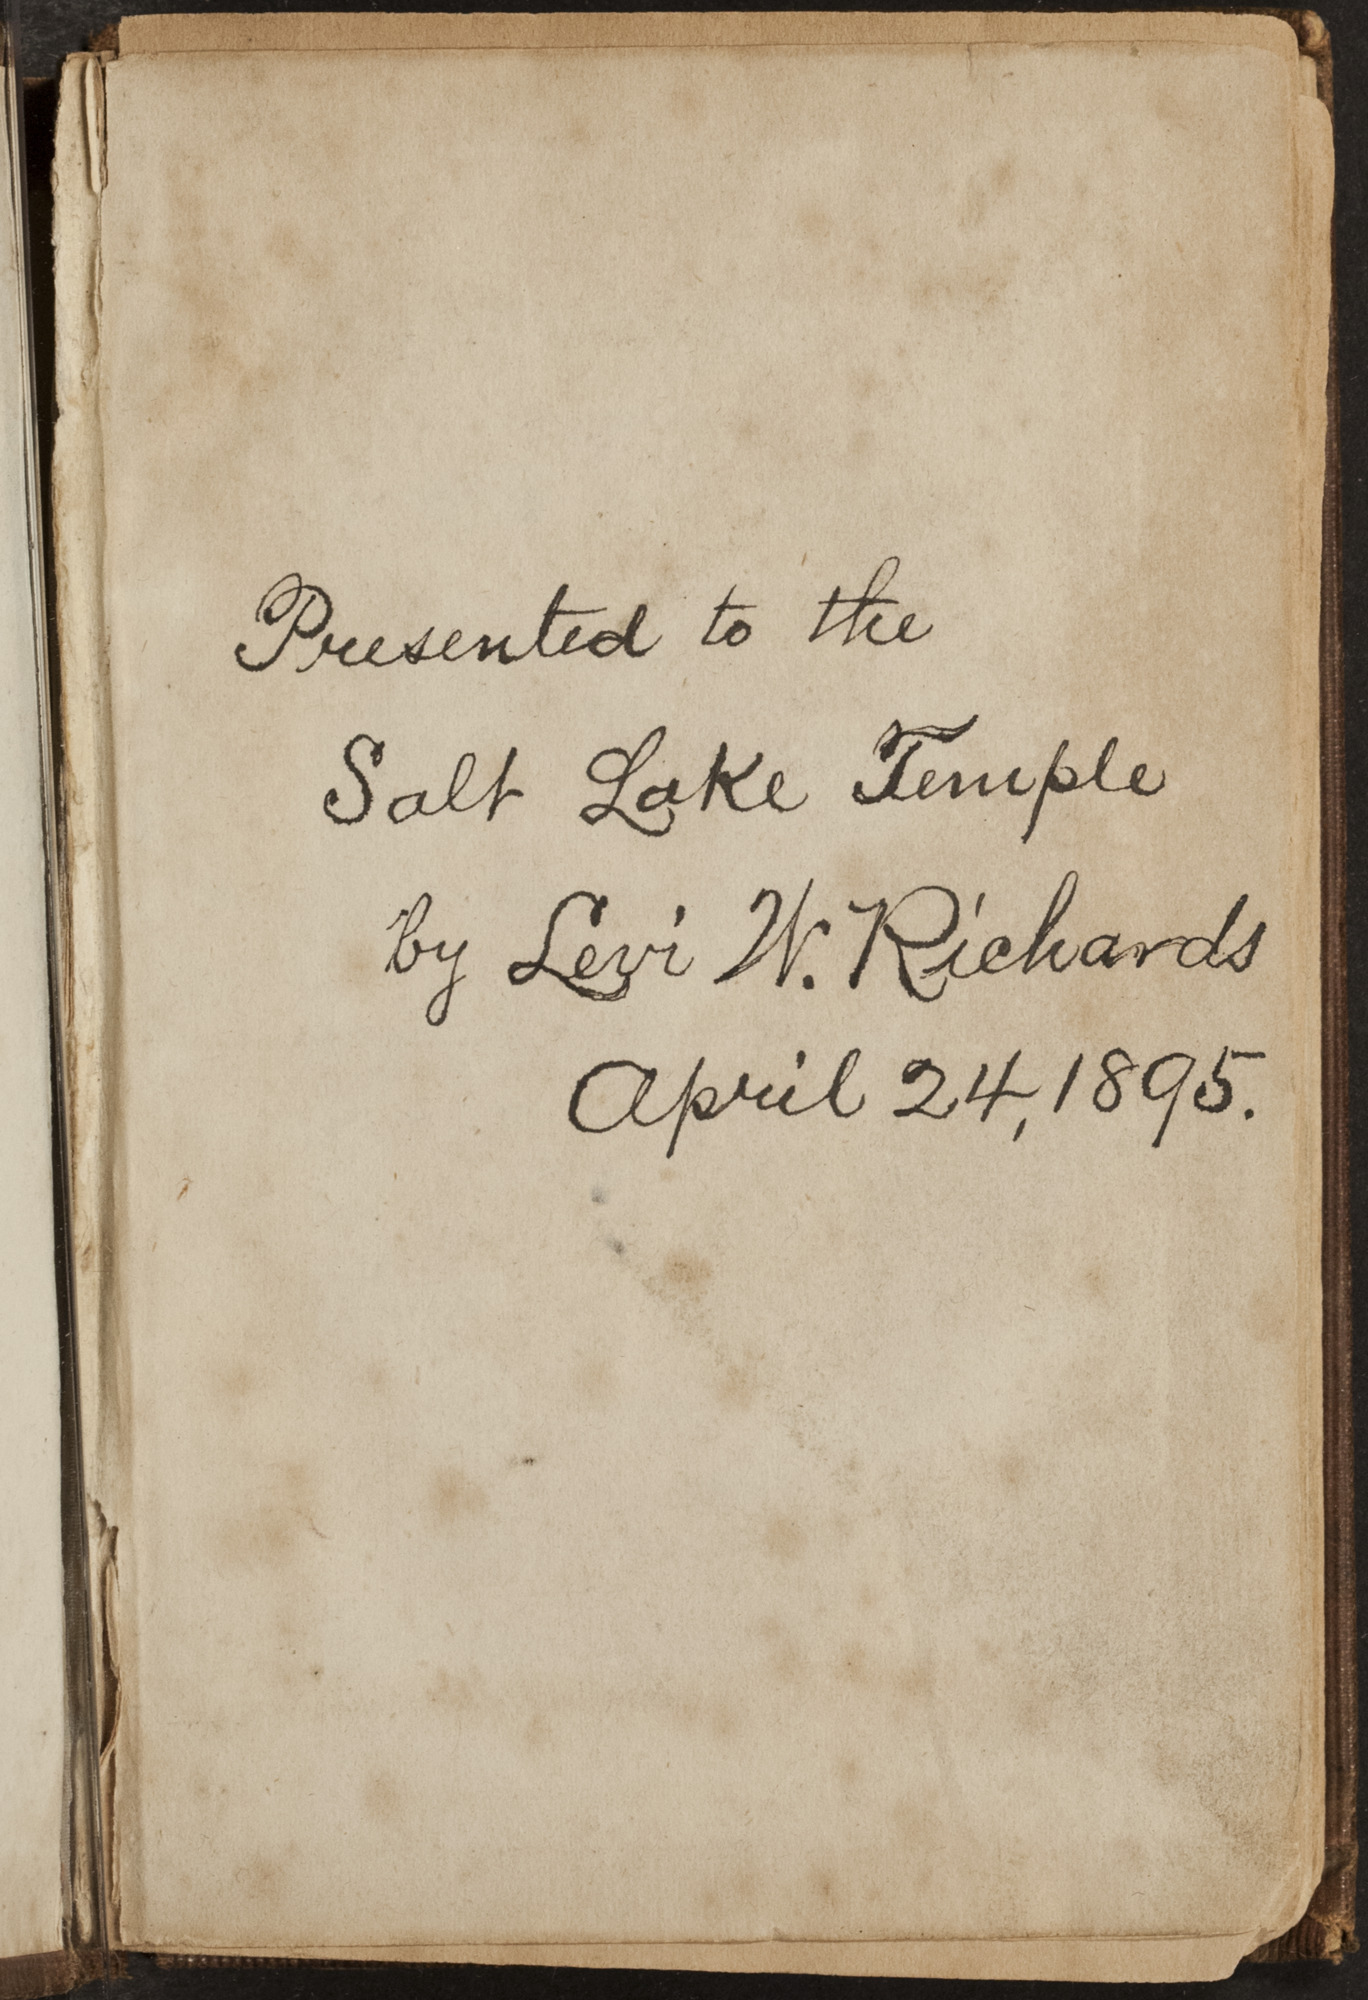 Presented to the
Salt Lake Temple
by Levi W. Richards
April 24, 1895.